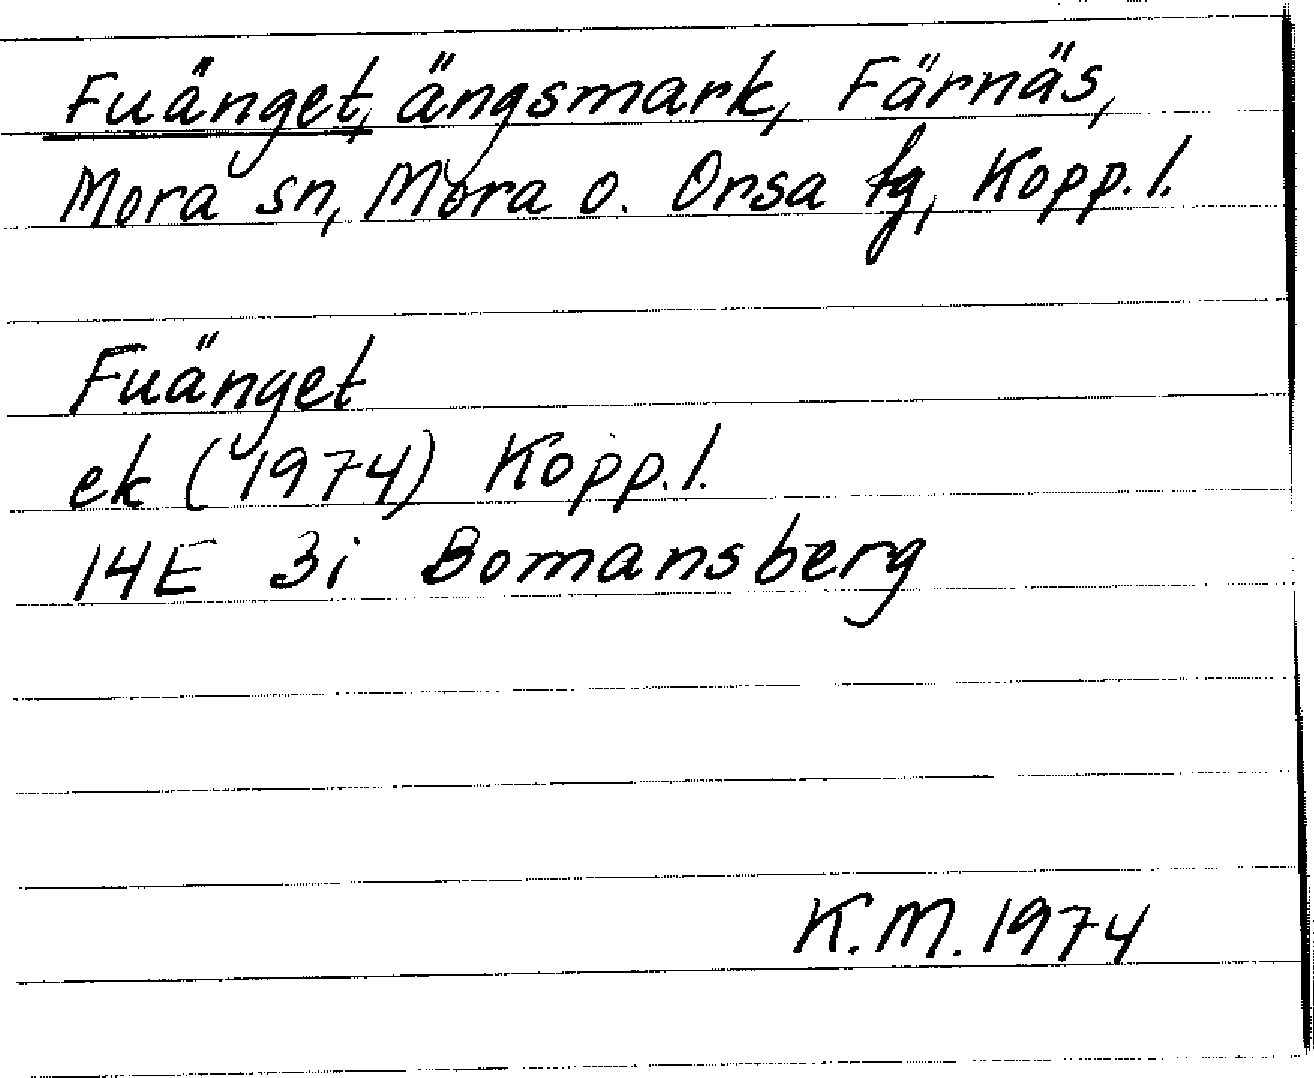 Fuänget, ängsmark, Färnäs,
Mora sn, Mora o. Orsa tg, Kopp. l.
Fuänget
ek (1974) Kopp. l.
14E 3i Bomansberg
K.M. 1974